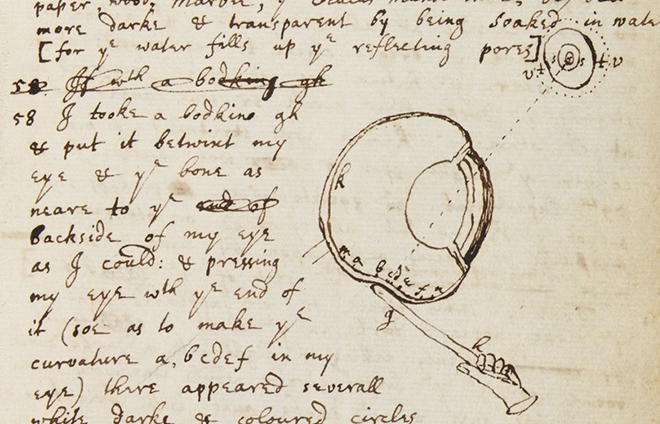 more darke & transparent by being soaked in water
[for ye water fills up ye reflecting pores]
58 If wth a bodkine gh
58 I tooke a bodkine gh
& put it betwixt my
eye & ye bone as
neare to ye end of
backside of my eye
as I could: & pressing
my eye wth ye end of
it (soe as to make ye
curvature a, bcdef in my
eye) there appeared severall
white darke & coloured circles
v t s s t v
k
m a b c d e f n
g
h